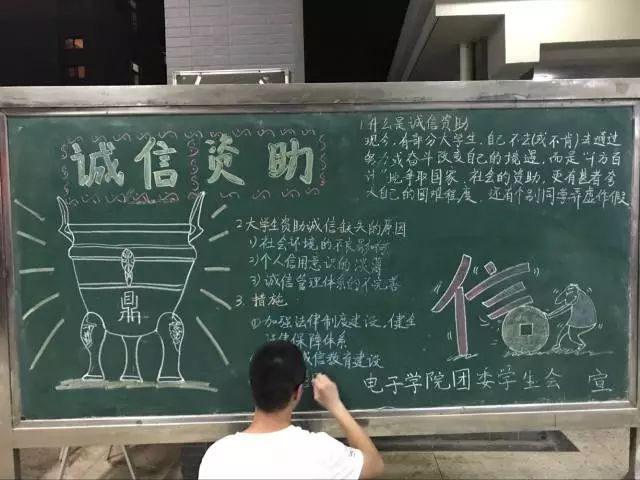 诚信资助
1.什么是诚信资助
现今,有部分大学生,自己不去(或不肯)去通过
努力或奋斗改变自己的境遇,而是“千方百
计”地争取国家、社会的资助,更有甚者夸
大自己的困难程度,还有个别同学弄虚作假
2.大学生资助诚信缺失的原因
1)社会环境的不良影响
2)个人信用意识的淡薄
3)诚信管理体系的不完善
3.措施
①加强法律制度建设,健全
法律保障体系
诚信教育建设
鼎
信
电子学院团委学生会 宣